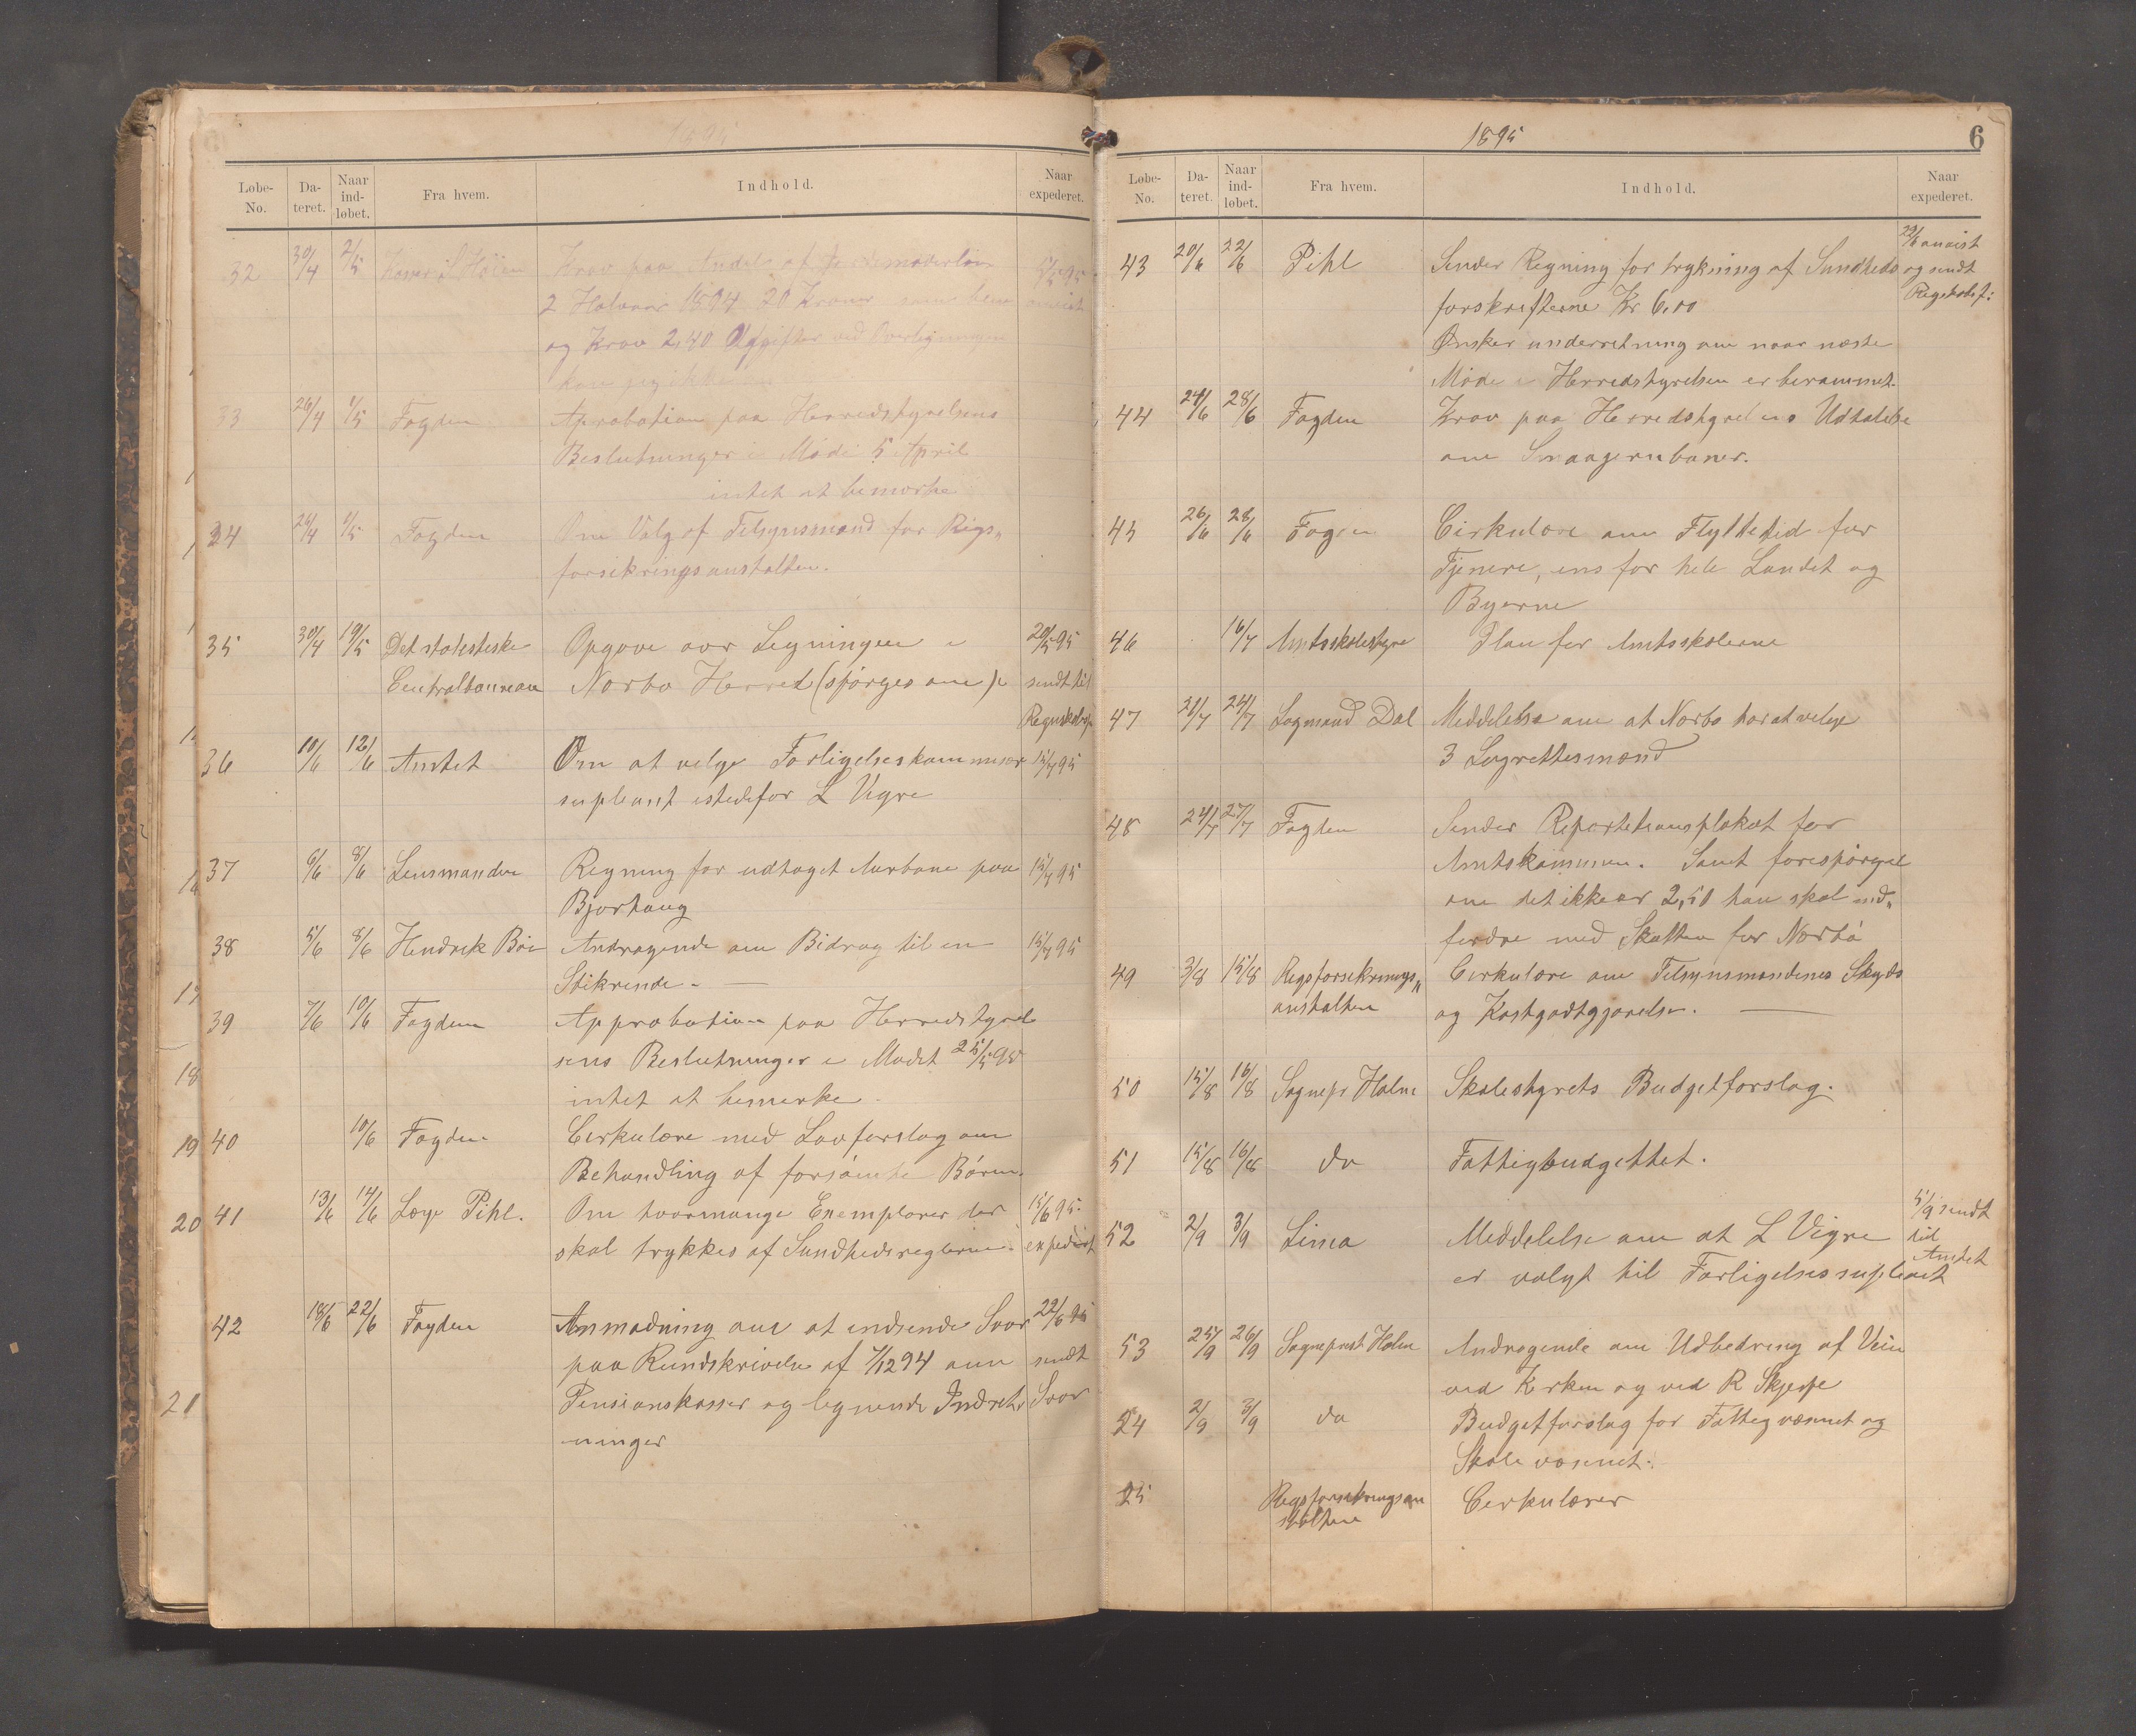 1895
Løbe-No. Da-teret. Naar ind-løbet. Fra hvem. Indhold. Naar expederet.
32 30/4 2/5 Krav paa Andel af Jordemoderløn
2 Halvaar 1894 20 Kroner som anvist
og Krav 2,40 Udgifter ved Overligningen
kan jeg ikke
33 26/4 1/5 Fogden Aprobation paa Herredstyrelsens
Beslutninger i Møde 5 April
intet at bemærke
34 26/4 1/5 Fogden Om Valg af Tilsynsmænd for Rigs„
forsikringsanstalten.
35 30/4 19/5 Det statestiske Opgave over Ligningen i 20/5 95
Centralbaureau Nærbo Herred (spørges om) sendt til
Regnskabsf
36 10/6 12/6 Amtet Om at velge Forligelseskommisær 15/7 95
supleant istedefor L Vigre
37 6/6 8/6 Lensmanden Regning for udtaget Aurbane paa 15/7 95
Bjorhaug
38 5/6 8/6 Hendrik Bøe Andragende om Bidrag til en 15/7 95
Stikrende -
39 7/6 10/6 Fogden Approbation paa Herredstyrel
sens Beslutninger i Mødet 25/5 95
intet at bemerke -
40 10/6 Fogden Cirkulære med Lovforslag om
Behandling af forsømte Børn.
41 13/6 14/6 Læge Pihl. Om hvormange Exemplarer der 15/6 95.
skal trykkes af Sundhedsreglerne. expedert
42 18/6 22/6 Fogden Anmodning om at indsende Svar 22/6 95
paa Rundskrivelse af 7/12 94 om sendt
Pensionskasser og lignende Indret, Svar
-ninger
1895 6
Løbe-No. Da-teret. Naar ind-løbet. Fra hvem. Indhold. Naar expederet.
43 20/6 22/6 Pihl Sender Regning for trykning af Sundheds 22/6 anvist og sendt
forskrifterne Kr 6,00 Regskabsf:
Ønsker underretning om naar næste
Møde i Herredstyrelsen er berammet.
44 24/6 28/6 Fogden Krav paa Herredstyrelens Udtalelse
om Smaajernbaner.
45 26/6 28/6 Fogen Cirkulære om Flyttetid for
Tjenere, ens for hele Landet og
Byerne
46 16/7 Amtsskolestyre Plan for Amtsskolerne
47 21/7 24/7 Lagmand Dal Meddelelse om at Nærbo har at velge
3 Lagrettesmænd
48 24/7 27/7 Fogden Sender Repartetionsplakat for
Amtskommunen. Samt forespørgsel
om det ikke er 2,50 han skal ind„
fordre med Skatten for Nærbø
49 3/8 15/8 Rigsforsikrings„ Cirkulære om Tilsynsmændenes Skyds
anstalten og Kostgodtgjørelse.
50 15/8 16/8 Sognepr Holm Skolestyrets Budgetforslag.
51 15/8 16/8 do Fattigbudgettet.
52 2/9 3/9 Lima Meddelelse om at L Vigre 5/9 sendt til
er valgt til Forligelsessupleant Amtet
53 25/9 26/9 Sogneprest Holm Andragende om Udbedring af Veien
ved Kirken og ved R Skjerpe
24 2/9 3/9 do Budgetforslag for Fattigvæsnet og
Skolevæsenet.
25 Rigsforsikringsan Cirkulærer
stalten
17
18
19
20
21